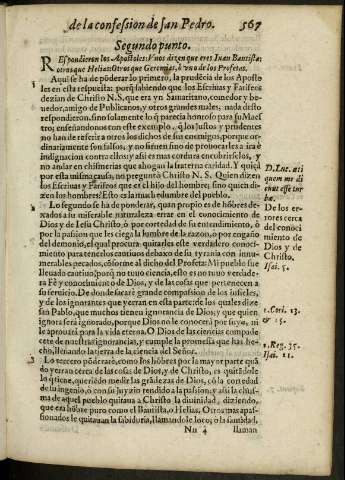 de la confession de san Pedro. 567
Segundo punto.
REspondieron los Apostoles: Vnos dizen que eres Iuan Bautista:
otros que Helias: Otros que Geremias, ò vno de los Profetas.
Aqui se ha de pōderar lo primero, la prudēcia de los Aposto
1 les en esta respuesta: porq̃ sabiendo que los Escriuas y Fariseos
dezian de Christo N.S. que era vn Samaritano, comedor y be-
uedor, amigo de Publicanos, y otros grandes males, nada desto
respondieron, sino solamente lo q̃ parecia honroso para su Maes
tro; enseñandonos con este exemplo, q̃ los justos y prudentes
no han de referir a otros los dichos de sus enemigos, porque or-
dinariamente son falsos, y no siruen sino de prouocarse a ira è
indignacion contra ellos: y assi es mas cordura encobrirselos, y
no auiuar en chismerias que ahogan la fraterna caridad. Y quiçà
por esta misma causa, no preguntò Christo N. S. Quien dizen
los Escriuas y Fariseos que es el hijo del hombre, sino quien di-
zen los hombres? Esto es la muchedumbre del pueblo.
D. Luc. ait
quem me di
cunt esse tur
ba.
2 Lo segundo se ha de ponderar, quan propio es de hōbres de-
xados a su miserable naturaleza errar en el conocimiento de
Dios y de Iesu Christo, ò por cortedad de su entendimiento, ò
por la passion que les ciega la lumbre de la razon, ò por engaño
del demonio, el qual procura quitarles este verdadero conoci-
miento para tenerlos cautiuos debaxo de su tyrania con innu-
merables pecados, cōforme al dicho del Profeta: Mi pueblo fue
lleuado cautiuo, porq̃ no tuuo ciencia, esto es no tuuo verdade-
ra Fè y conocimiento de Dios, y de las cosas que pertenecen a
su seruicio. De donde sacarè grande compassion de los infieles,
y de los ignorantes que yerran en esta parte: de los quales dize
san Pablo, que muchos tienen ignorancia de Dios, y que quien
ignora serà ignorado, porque Dios no le conocerà por suyo, ni
le aprouarà para la vida eterna. O Dios de las ciencias compade
cete de nuestras ignorancias, y cumple la promessa que has he-
cho, llenando la tierra de la ciencia del Señor.
De los er-
rores cerca
del conoci
miento de
Dios y de
Christo.
Isai. 5.
1. Cori. 13.
& 15.
1. Reg. 35.
Isai. 11.
3 Lo tercero pōderarè, como los hōbres por la mayor parte quā
do yerran cerca de las cosas de Dios, y de Christo, es quitādole
lo q̃ tiene, queriēdo medir las grādezas de Dios, cō la cortedad
de su ingenio, ò con su juyzio rendido a la passion, y assi la chus-
ma de aquel pueblo quitaua a Christo la diuinidad, diziendo,
que era hōbre puro como el Bautista, o Helias. Otros mas apas-
sionados le quitauan la sabiduria, llamandole loco; o la santidad,
Nn 4 llaman